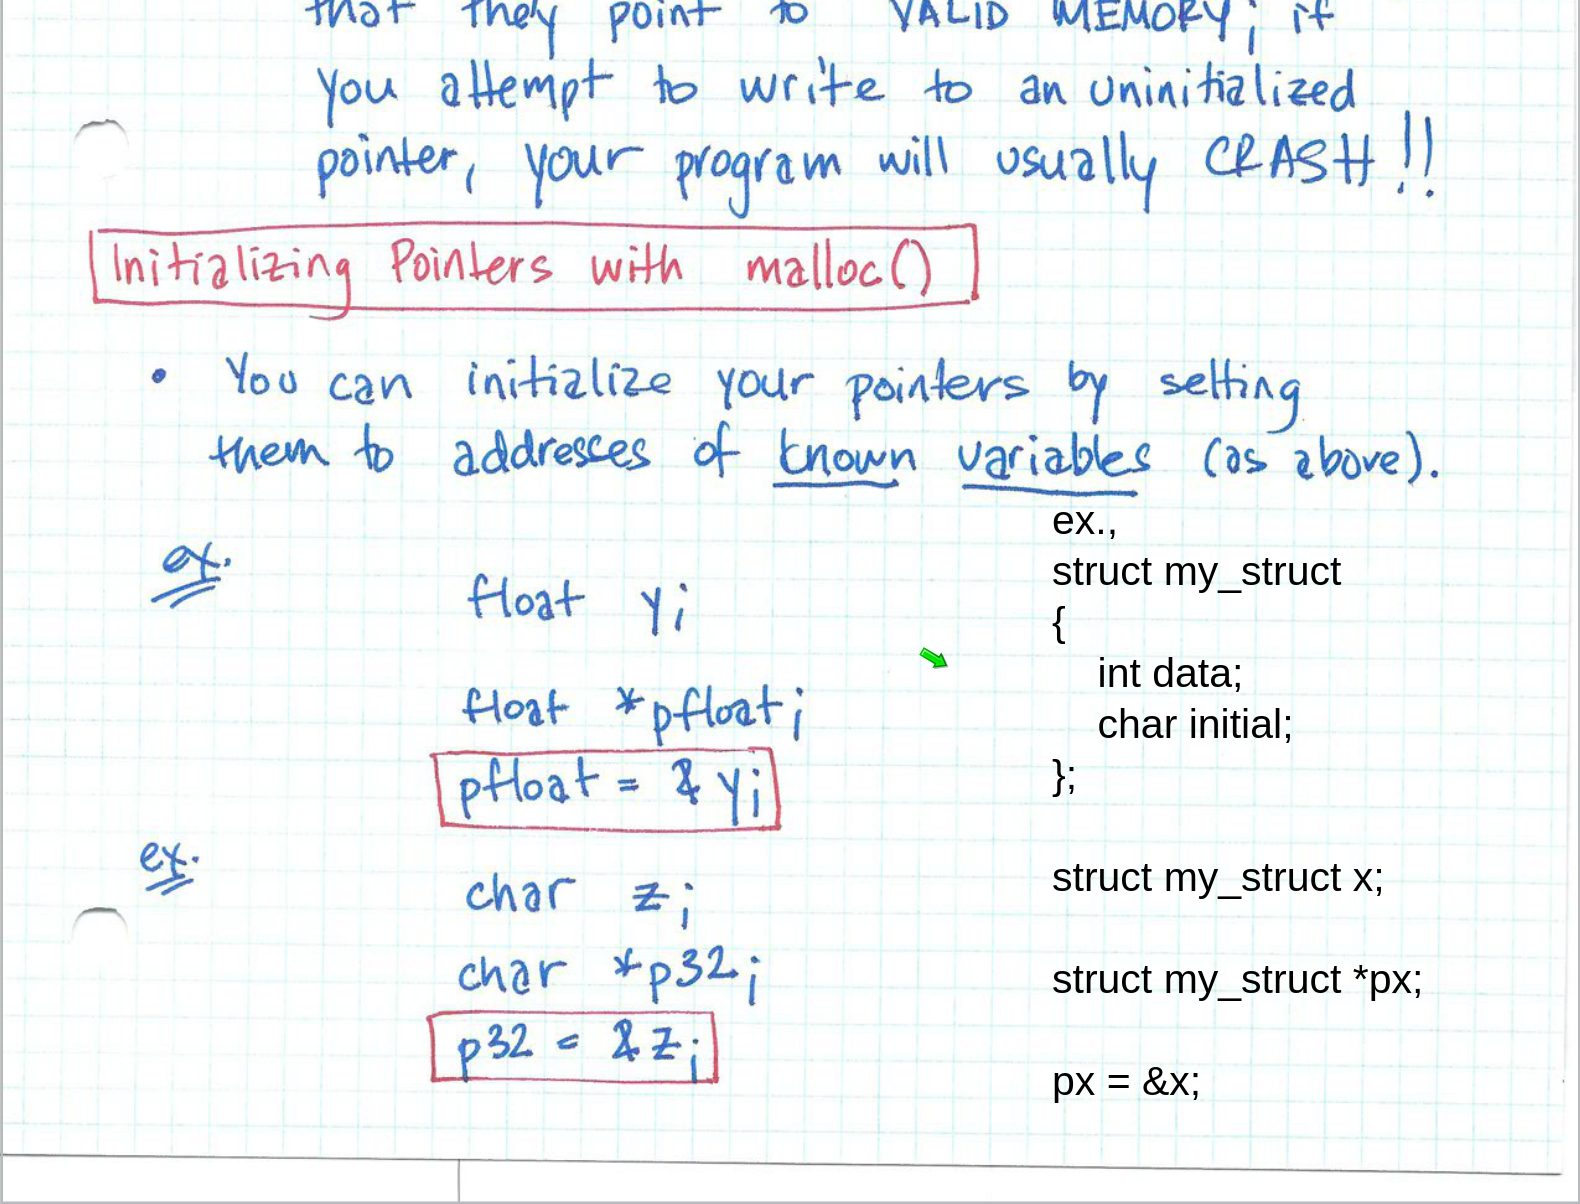 that they point to VALID MEMORY; if
you attempt to write to an uninitialized
pointer, your program will usually CRASH!!
Initializing Pointers with malloc()
• You can initialize your pointers by setting
them to addresses of known variables (as above).
ex.
float y;
float *pfloat;
pfloat = &y;
ex.
char z;
char *p32;
p32 = &z;
ex.,
struct my_struct
{
int data;
char initial;
};
struct my_struct x;
struct my_struct *px;
px = &x;